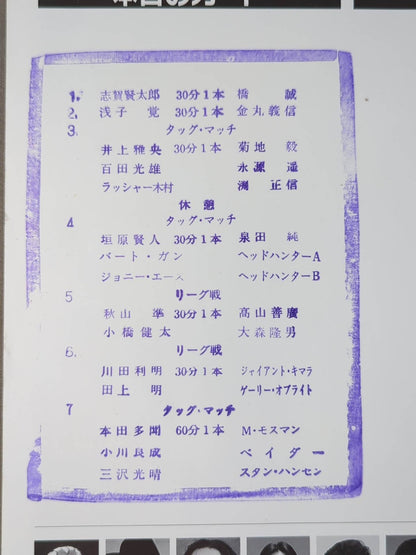 本日のカード
1. 志賀賢太郎 30分1本 橋 誠
2. 浅子 覚 30分1本 金丸義信
3 タッグ・マッチ
井上雅央 30分1本 菊地 毅
百田光雄 永源 遥
ラッシャー木村 渕 正信
休憩
4 タッグ・マッチ
垣原賢人 30分1本 泉田 純
バート・ガン ヘッドハンターA
ジョニー・エース ヘッドハンターB
5 リーグ戦
秋山 準 30分1本 高山善廣
小橋健太 大森隆男
6. リーグ戦
川田利明 30分1本 ジャイアント・キマラ
田上 明 ゲーリー・オブライト
7 タッグ・マッチ
本田多聞 60分1本 M・モスマン
小川良成 ベイダー
三沢光晴 スタン・ハンセン